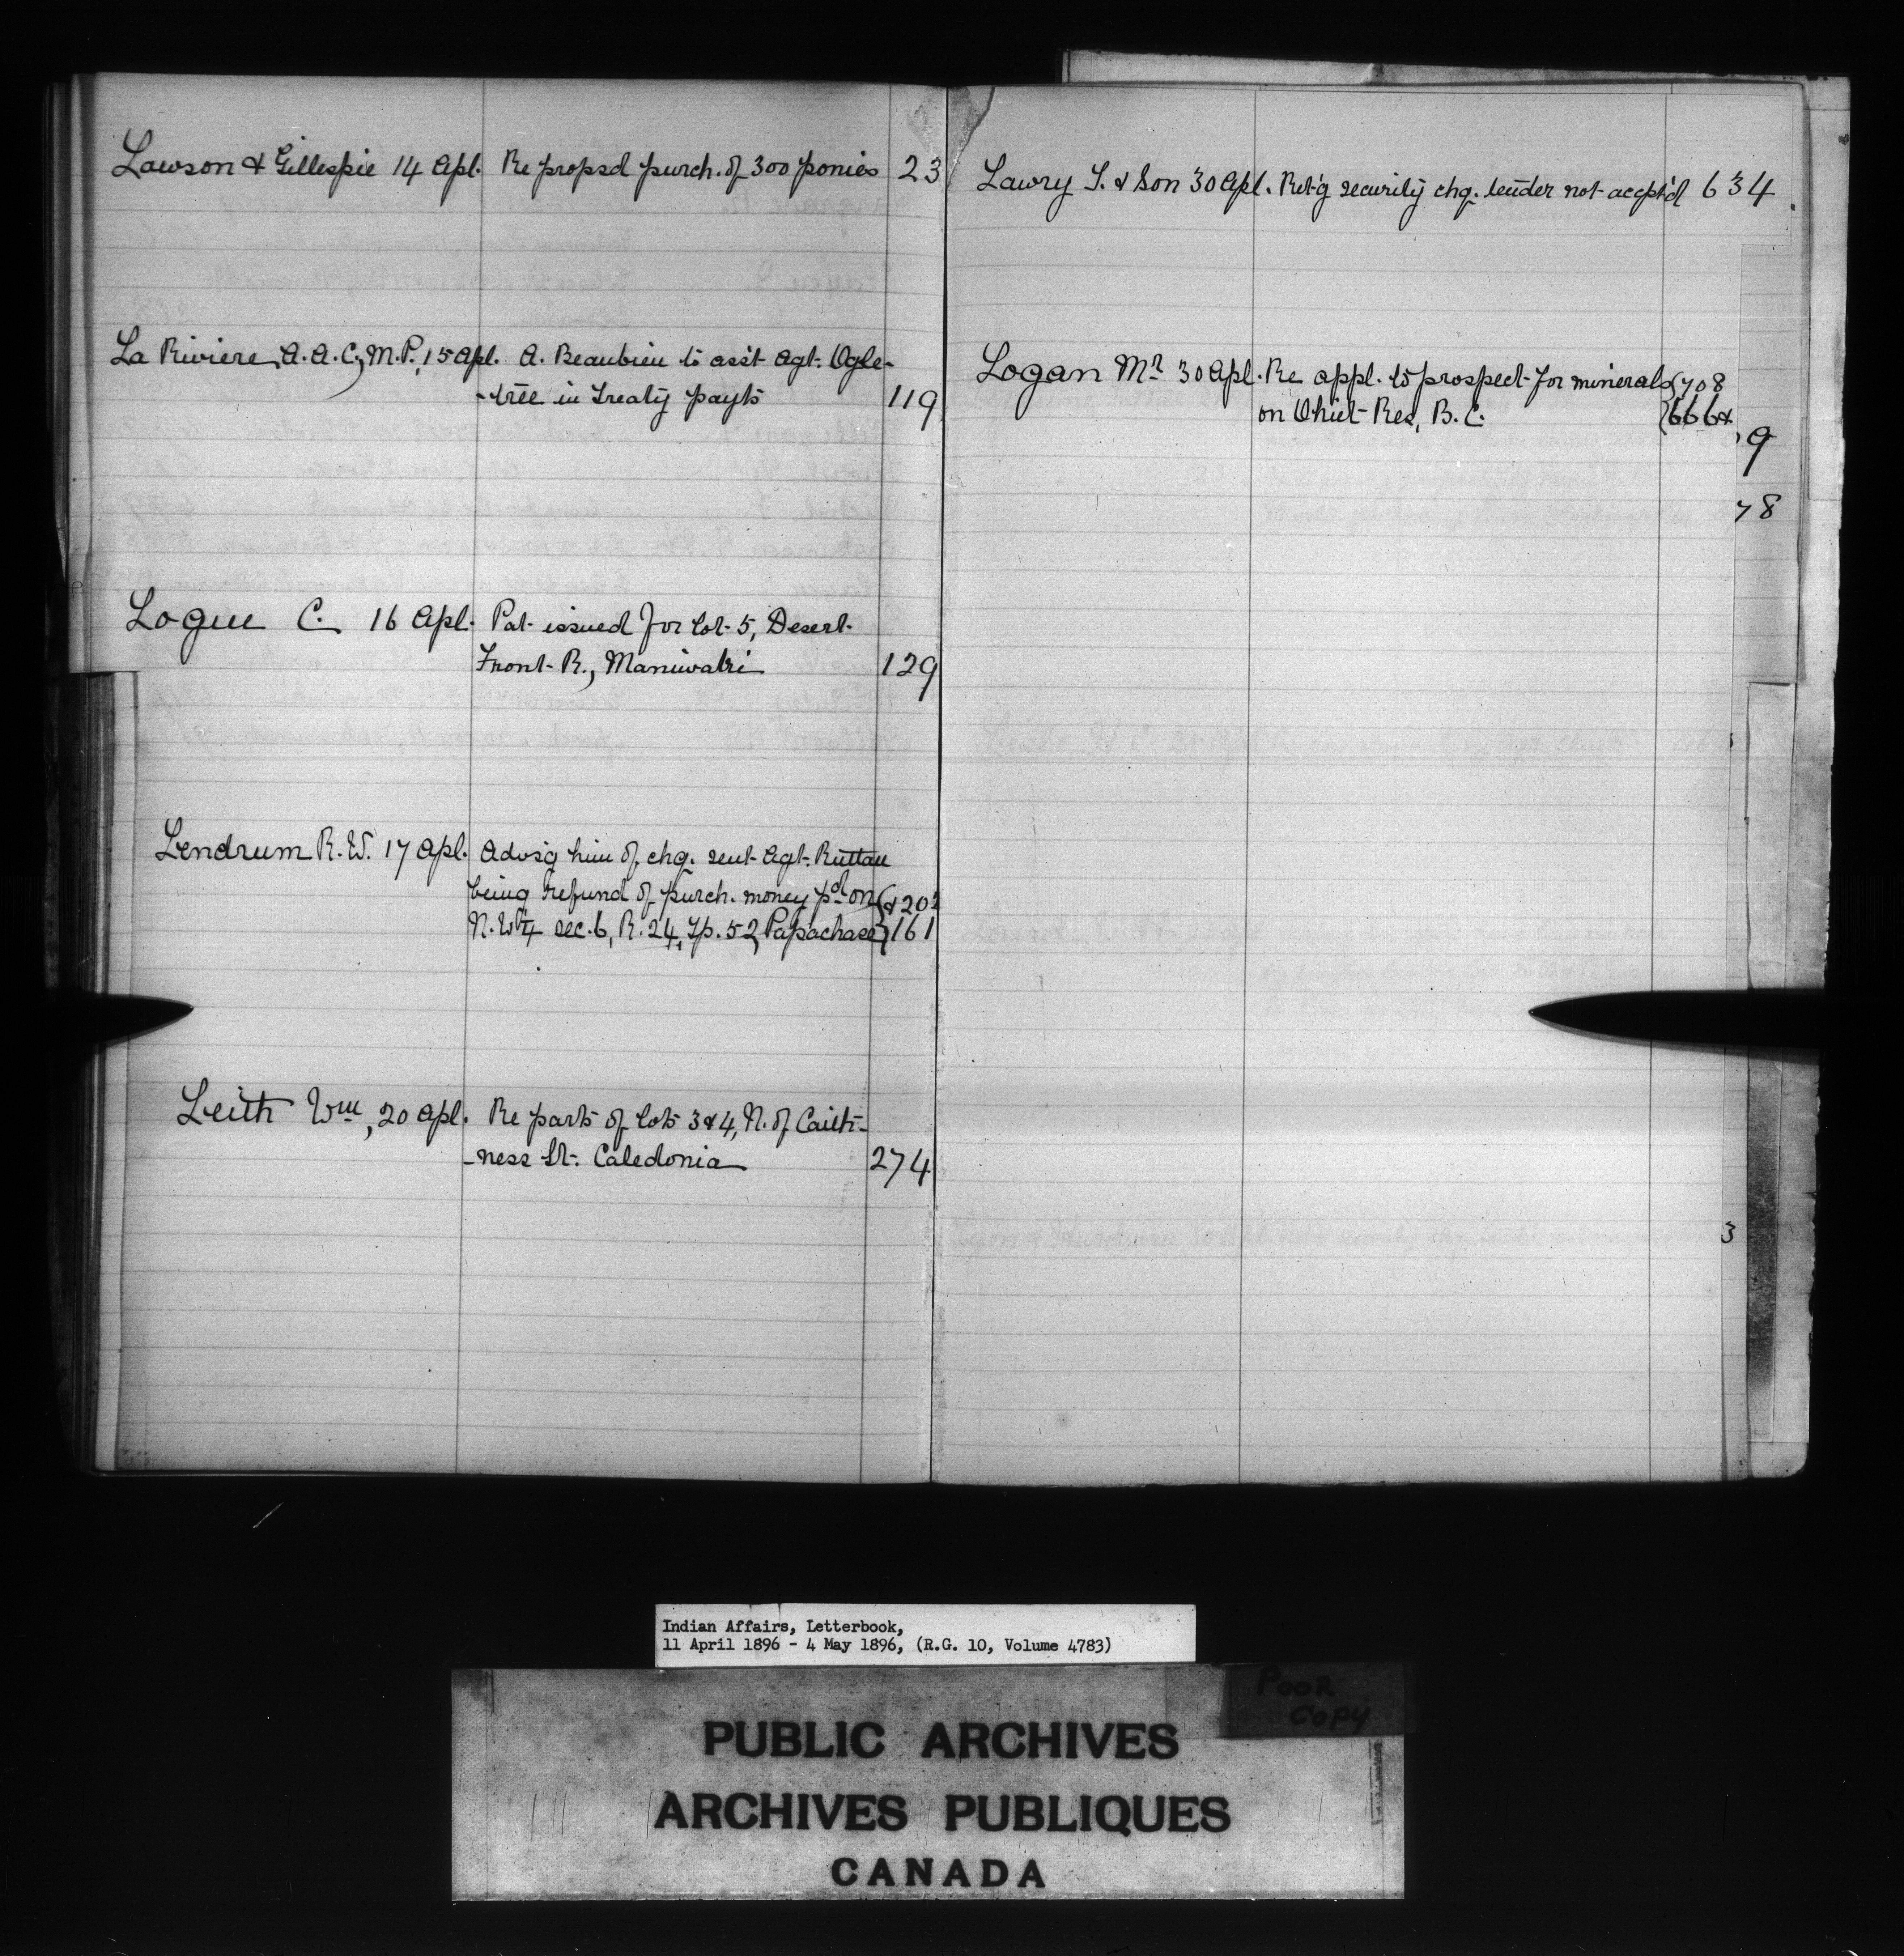 Lawson & Gillespie 14 Apl. Re propsd purch. of 300 ponies 23
La Riviere, A.A.C., M.P., 15 Apl. A. Beaubien to ass't Agt. Ogle-
-tree in Treaty payts 119
Logue C. 16 Apl. Pat. issued for Lot 5, Desert
Front R., Maniwaki 129
Lendrum R.W. 17 Apl. Advs'g him of chq. sent Agt. Ruttan
being refund of purch. money pd on {& 202
N.W¼ sec. 6, R. 24, Tp. 52, Papachase} 161
Leith Wm, 20 Apl. Re parts of Lots 3 & 4, N. of Caith-
-ness St. Caledonia 274
Lawry S. & Son 30 Apl. Ret'g security chq. tender not accpt'd 634
Logan Mr 30 Apl. Re appl. to prospect for minerals {708
on Ohiet Res, B.C. {666 &
9
78
3
Indian Affairs, Letterbook,
11 April 1896 - 4 May 1896, (R.G. 10, Volume 4783)
POOR
COPY
PUBLIC ARCHIVES
ARCHIVES PUBLIQUES
CANADA